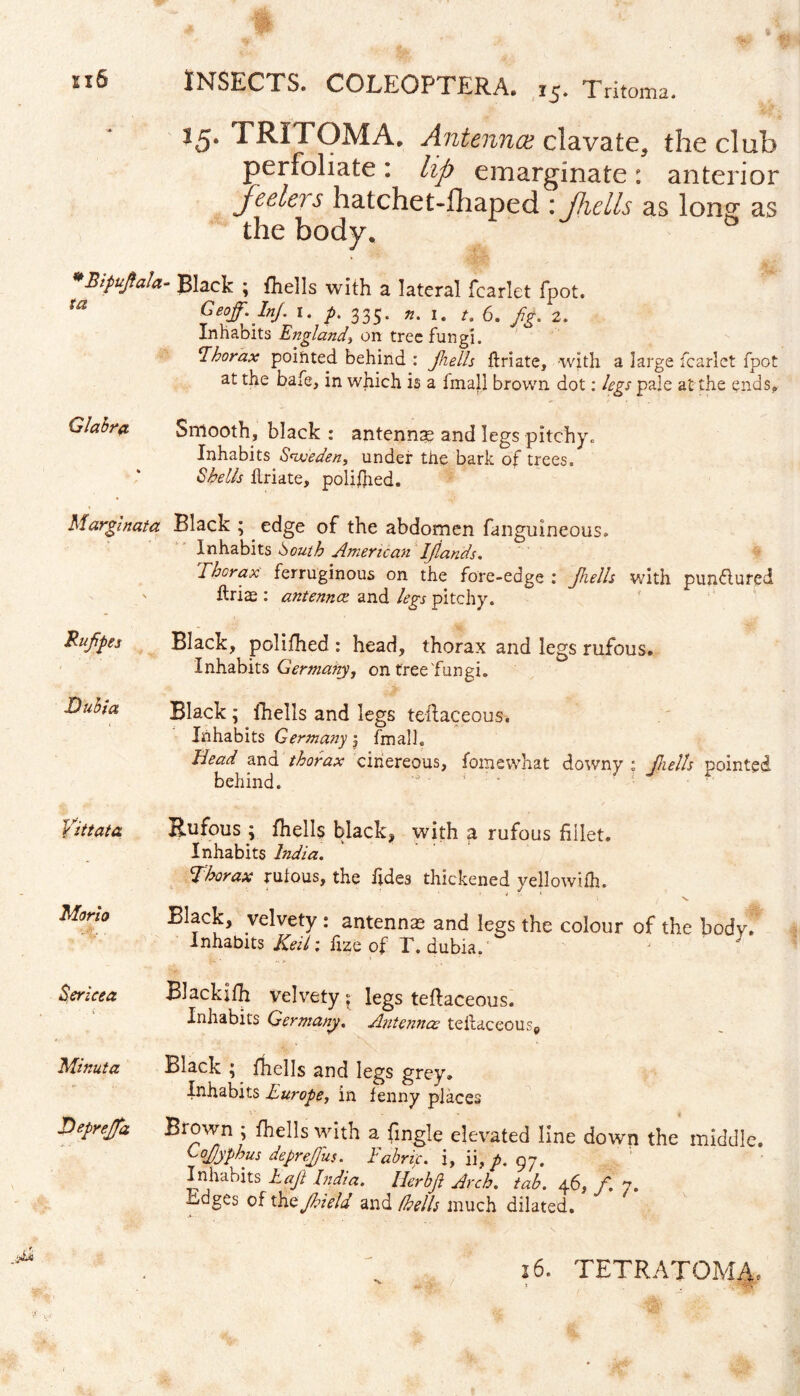 116 INSECTS. COLEOPTERA. 15. Tritoma.
15. TRITOMA. Antennæ clavate, the club
perfoliate: lip emarginate: anterior
feelers hatchet-ſhaped: ſhells as long as
the body.
*Bipuſtala- Black; ſhells with a lateral ſcarlet ſpot.
ta Geoff. Inſ. 1. p. 335. n. 1. t. 6. fig. 2.
Inhabits England, on tree fungi.
Thorax pointed behind: ſhells ſtriate, with a large ſcarlet ſpot
at the baſe, in which is a ſmall brown dot: legs pale at the ends.
Glabra Smooth, black: antennæ and legs pitchy.
Inhabits Sweden, under the bark of trees.
Shells ſtriate, poliſhed.
Marginata Black; edge of the abdomen ſanguineous.
Inhabits South American Iſlands.
Thorax ferruginous on the fore-edge: ſhells with punctured
ſtriæ: antennæ and legs pitchy.
Rufipes Black, poliſhed: head, thorax and legs rufous.
Inhabits Germany, on tree fungi.
Dubia Black; ſhells and legs teſtaceous.
Inhabits Germany; ſmall.
Head and thorax cinereous, ſomewhat downy: ſhells pointed
behind.
Vittata Rufous; ſhells black, with a rufous fillet.
Inhabits India.
Thorax rufous, the ſides thickened yellowiſh.
Morio Black, velvety: antennæ and legs the colour of the body.
Inhabits Keil: ſize of T. dubia.
Sericea Blackiſh velvety: legs teſtaceous.
Inhabits Germany. Antennæ teſtaceous.
Minuta Black; ſhells and legs grey.
Inhabits Europe, in fenny places
Depreſſa Brown; ſhells with a ſingle elevated line down the middle.
Coſſyphus depreſſus. Fabric. i, ii, p. 97.
Inhabits Eaſt India. Herbſt Arch. tab. 46, f. 7.
Edges of the ſhield and ſhells much dilated.
16. TETRATOMA.